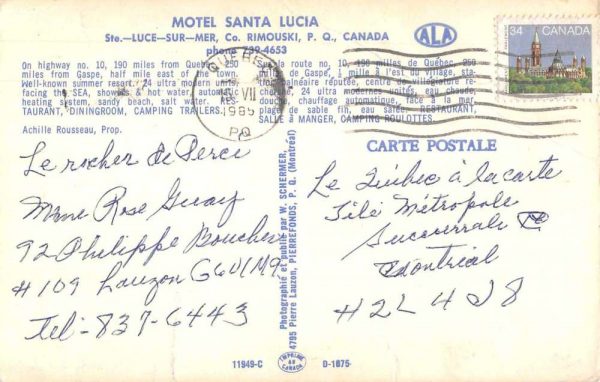 MOTEL SANTA LUCIA
Ste.—LUCE—SUR—MER, Co. RIMOUSKI, P. Q., CANADA
phone 739-4653
ALA
34 CANADA
On highway no. 10, 190 miles from Quebec, 250
miles from Gaspe, half mile east of the town.
Well-known summer resort. 24 ultra modern units,
facing the SEA, shower, hot water, automatic
heating system, sandy beach, salt water. RES-
TAURANT, DININGROOM, CAMPING TRAILERS.
Achille Rousseau, Prop.
la route no. 10, 190 milles de Québec, 250
milles de Gaspé, ½ mille à l'est du village, sta-
tion balnéaire réputée, centre de villégiature
24 ultra modernes unités, eau chaude,
douche, chauffage automatique, face à la mer
plage de sable fin, eau salée. RESTAURANT,
SALLE à MANGER, CAMPING ROULOTTES.
QUEBEC
VII
1985
PQ
CARTE POSTALE
Le rocher de Percé
Mme Rose Guay
92 Philippe Boucher
#109 Lauzon G6V1M9
Tel:- 837-6443
Photographié et publié par W. SCHERMER,
4795 Pierre Lauzon, PIERREFONDS, P. Q. (Montréal)
Le Québec à la carte
Télé Métropole
Succursale C
Montréal
H2L 4J8
11949-C
IMPRIMÉ AU CANADA
D-1875